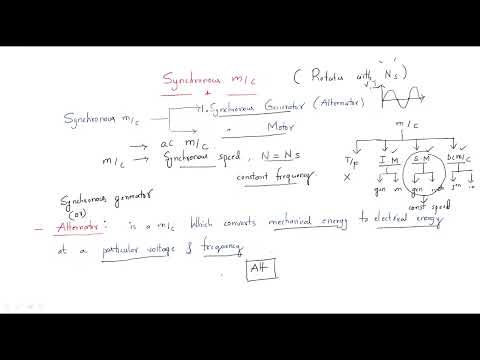 Synchronous m/c
( Rotates with "Ns")
1. Synchronous Generator (Alternator)
Synchronous m/c
" Motor
→ ac m/c
m/c → Synchronous speed, N = Ns
constant frequency
m/c
T/f I.M S.M DC m/c
X gen m gen mot gen m
const speed
Synchronous generator
(or)
– Alternator : is a m/c which converts mechanical energy to electrical energy
at a particular voltage & frequency
Alt